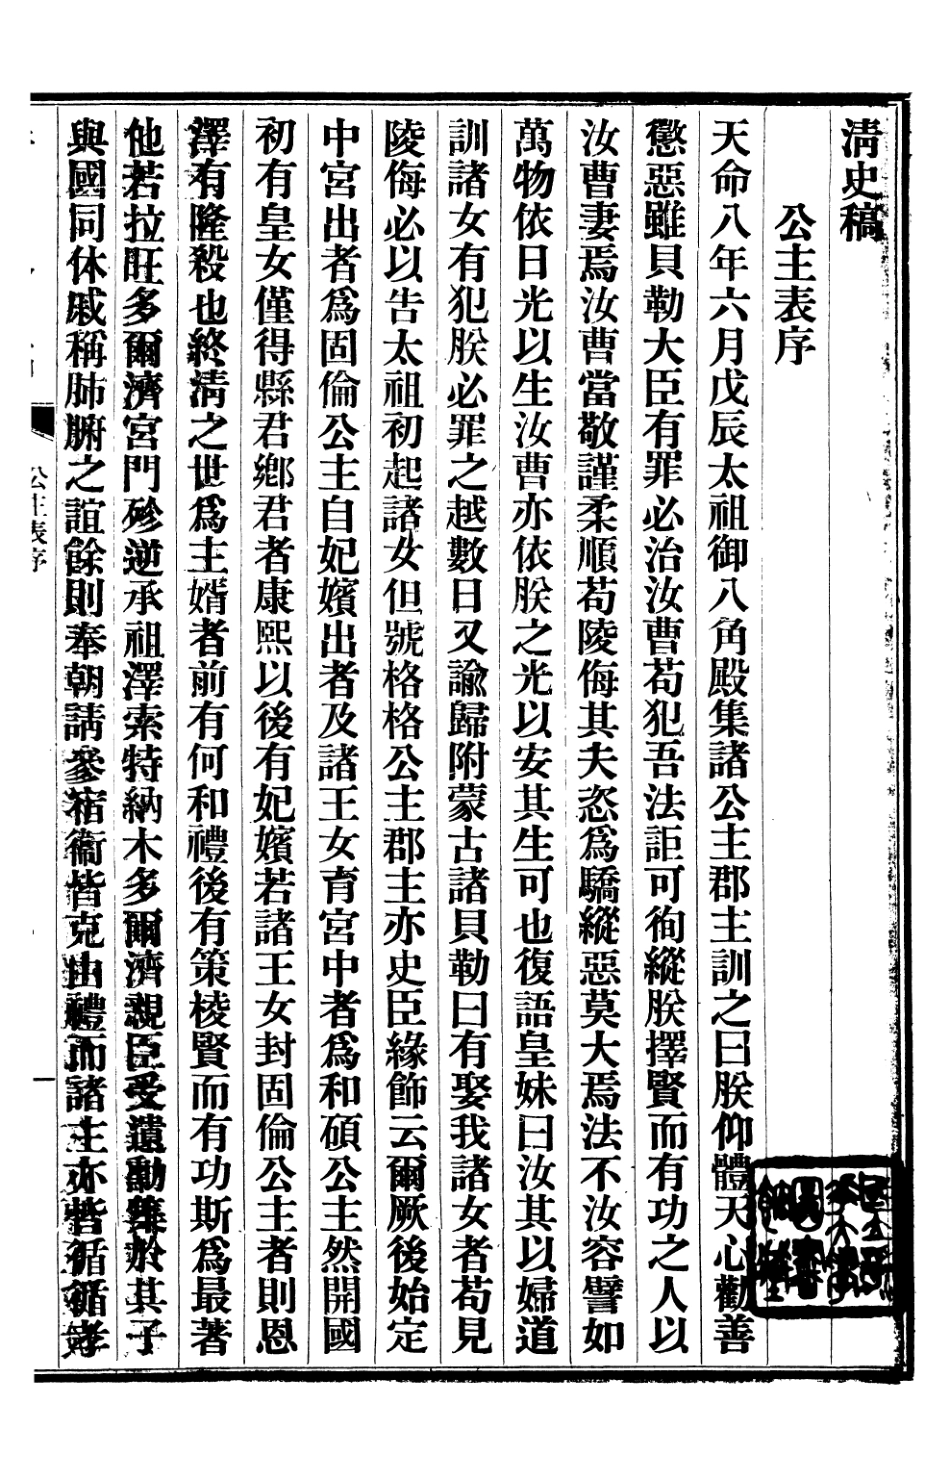 清史稿
公主表序
天命八年六月戊辰太祖御八角殿集諸公主郡主訓之曰朕仰體天心勸善
懲惡雖貝勒大臣有罪必治汝曹苟犯吾法詎可徇縱朕擇賢而有功之人以
汝曹妻焉汝曹當敬謹柔順苟陵侮其夫恣爲驕縱惡莫大焉法不汝容譬如
萬物依日光以生汝曹亦依朕之光以安其生可也復語皇妹曰汝其以婦道
訓諸女有犯朕必罪之越數日又諭歸附蒙古諸貝勒曰有娶我諸女者苟見
陵侮必以告太祖初起諸女但號格格公主郡主亦史臣緣飾云爾厥後始定
中宮出者爲固倫公主自妃嬪出者及諸王女育宮中者爲和碩公主然開國
初有皇女僅得縣君鄉君者康熙以後有妃嬪若諸王女封固倫公主者則恩
澤有隆殺也終清之世爲主婿者前有何和禮後有策棱賢而有功斯爲最著
他若拉旺多爾濟宮門殄逆承祖澤索特納木多爾濟親臣受遺勳舞於其子
與國同休戚稱肺腑之誼餘則奉朝請參宿衞皆克由禮而諸主亦皆循循孝
公主表序
一